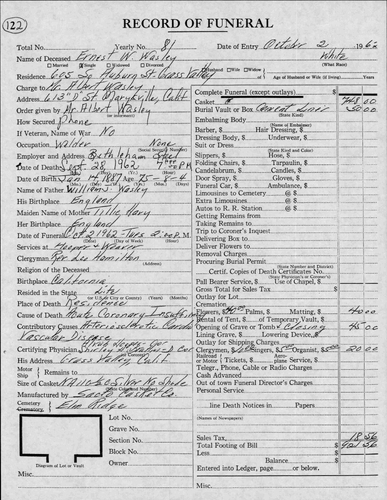 122
RECORD OF FUNERAL
Total No. Yearly No. 81 Date of Entry October 2 1962
Name of Deceased Ernest W. Wasley White
Married Single Widowed Divorced (What Race)
Residence 605 So Auburn St Grass Valley Husband Wife Widow Age of Husband or Wife (if living) Years
Charge to Mr. Albert Wasley
Address 613 "D" St Marysville, Calif
Order given by Mr. Albert Wasley
How Secured Phone
If Veteran, Name of War No
Occupation Welder None
Employer and Address Bethlehem Steel
Date of Death Sept. 28, 1962
Date of Birth Jan 14 1887 Age 75 - 8 - 4
Name of Father William Wasley
His Birthplace England
Maiden Name of Mother Tillie Hary
Her Birthplace England
Date of Funeral Oct 2 1962 - Tues 2:00 P. M.
Services at Hooper & Weaver
Clergyman Rev Les Hamilton
Religion of the Deceased
Birthplace California
Resided in the State Life
Place of Death Residence
Cause of Death Acute Coronary
Contributory Causes Arteriosclerotic Cardio
Vascular Disease
Certifying Physician
His Address Grass Valley Calif.
Motor
Ship Remains to
Size of Casket
Manufactured by Casket Co.
Cemetery
Crematory Elm Ridge
Lot No.
Grave No.
Section No.
Block No.
Owner
Diagram of Lot or Vault
Complete Funeral (except outlays) $
Casket 748.00
Burial Vault or Box Cement Liner 50.00
(State Kind)
Embalming Body
(Name of Embalmer)
Barber, $ Hair Dressing, $
Dressing Body, $ Underwear, $
Suit or Dress
(State Kind and Color)
Slippers, $ Hose, $
Folding Chairs, $ Tarpaulin, $
Candelabrum, $ Candles, $
Door Spray, $ Gloves, $
Funeral Car, $ Ambulance, $
Limousines to Cemetery @ $
Extra Limousines @ $
Autos to R. R. Station @ $
Getting Remains from
Taking Remains to
Trip to Coroner's Inquest
Delivering Box to
Deliver Flowers to
Removal Charges
Procuring Burial Permit
(State Number and District)
Certif. Copies of Death Certificates No.
Pall Bearer Service, $ Use of Chapel, $
Gross Total for Sales Tax $
Outlay for Lot
Cremation
Flowers, $40.00 Palms, $ Matting, $ 40.00
Rental of Tent, $ of Temporary Vault, $
Opening of Grave or Tomb Closing 45.00
Lining Grave, $ Lowering Device, $
Outlay for Shipping Charges
Clergyman, $ Singers, $ Organist, $5.00 20.00
Railroad
Motor Tickets, $ Aeroplane Service, $
Telegr., Phone, Cable or Radio Charges
Cash Advanced
Out of town Funeral Director's Charges
Personal Service
line Death Notices in Papers
(Names of Newspapers)
Sales Tax 18.56
Total Footing of Bill $ 921.56
Less
Balance $
Entered into Ledger, page or below.